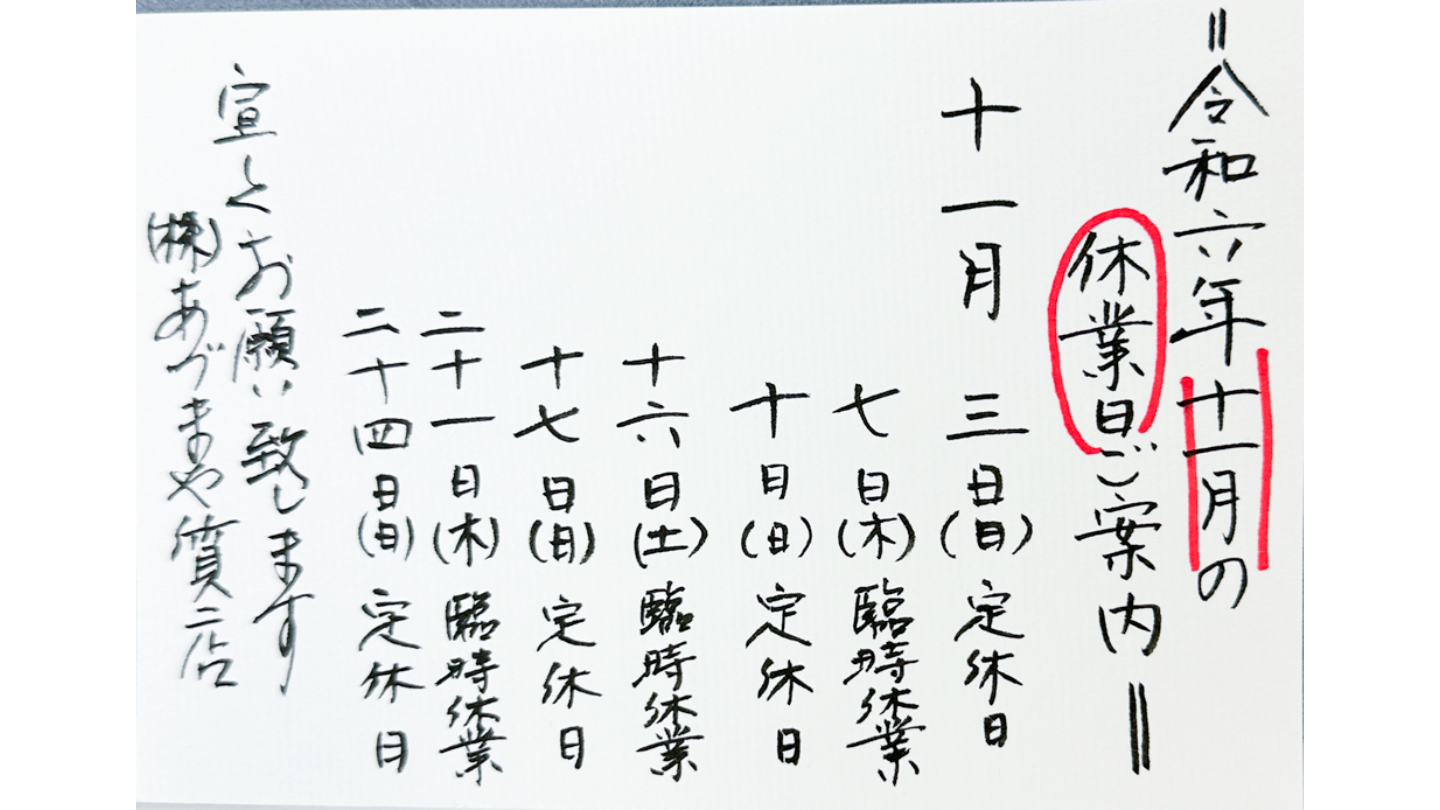 =令和六年十一月の
休業日ご案内=
十一月 三日(日)定休日
七日(木)臨時休業
十日(日)定休日
十六日(土)臨時休業
十七日(日)定休日
二十一日(木)臨時休業
二十四日(日)定休日
宜しくお願い致します
(株)あづまや質店